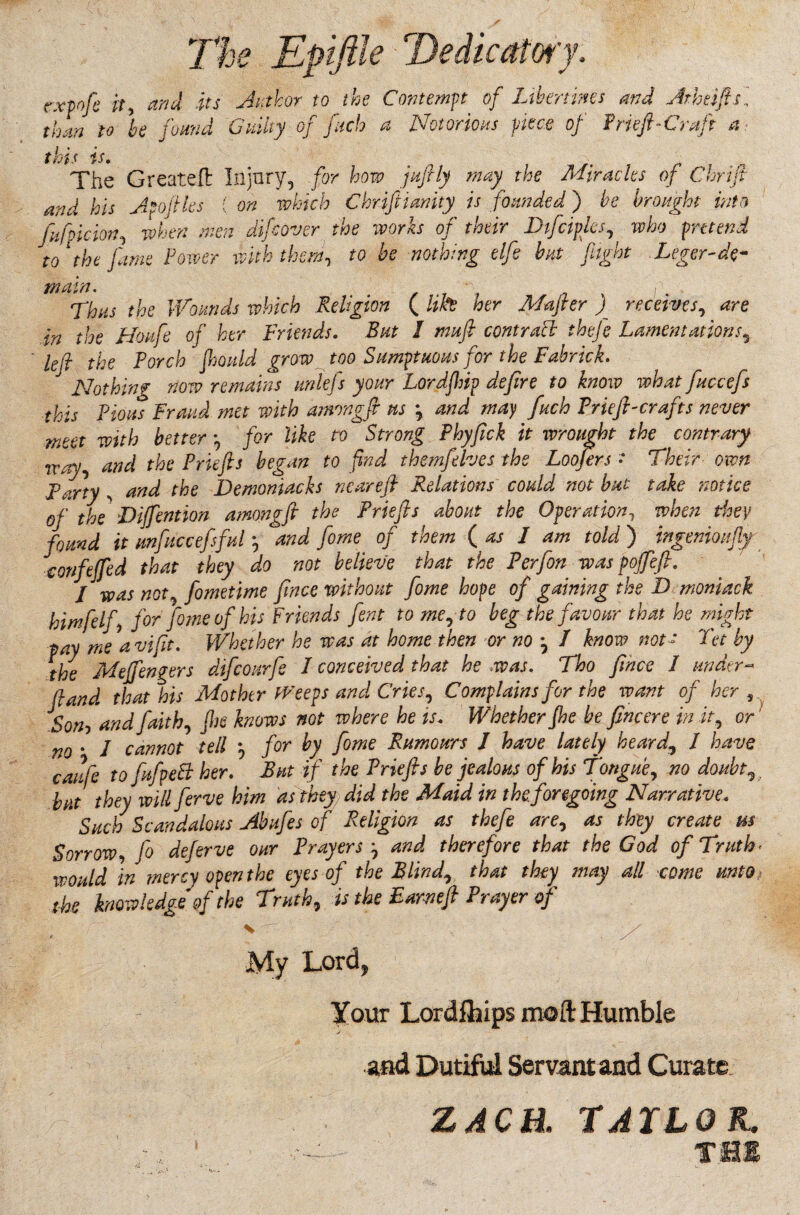 The Epiſtle Dedicatory.
expoſe it, and its Author to the Contempt of Libertines and Atheiſts,
than to be found Guilty of ſuch a Notorious piece of Prieſt-Craft a
this is.
The Greateſt Injury, for how juſtly may the Miracles of Chriſt
and his Apoſtles ( on which Chriſtianity is founded ) be brought into
ſuſpicion, when men diſcover the works of their Diſciples, who pretend
to the ſame Power with them, to be nothing elſe but ſlight Leger-de-
main.
Thus the Wounds which Religion ( like her Maſter ) receives, are
in the Houſe of her Friends. But I muſt contract theſe Lamentations,
leſt the Porch ſhould grow too Sumptuous for the Fabrick.
Nothing now remains unleſs your Lordſhip deſire to know what ſucceſs
this Pious Fraud met with amongſt us ; and may ſuch Prieſt-crafts never
meet with better ; for like to Strong Phyſick it wrought the contrary
way, and the Prieſts began to find themſelves the Looſers : Their own
Party , and the Demoniacks neareſt Relations could not but take notice
of the Diſſention amongſt the Prieſts about the Operation, when they
found it unſucceſsful ; and ſome of them ( as I am told ) ingeniouſly
confeſſed that they do not believe that the Perſon was poſſeſt.
I was not, ſometime ſince without ſome hope of gaining the D moniack
himſelf, for ſome of his Friends ſent to me, to beg the favour that he might
pay me a viſit. Whether he was at home then or no ; I know not : Yet by
the Meſſengers diſcourſe I conceived that he was. Tho ſince I under-
ſtand that his Mother Weeps and Cries, Complains for the want of her ,
Son, and ſaith, ſhe knows not where he is. Whether ſhe be ſincere in it, or
no ; I cannot tell ; for by ſome Rumours I have lately heard, I have
cauſe to ſuſpect her. But if the Prieſts be jealous of his Tongue, no doubt,
but they will ſerve him as they did the Maid in the foregoing Narrative.
Such Scandalous Abuſes of Religion as theſe are, as they create us
Sorrow, ſo deſerve our Prayers ; and therefore that the God of Truth
would in mercy open the eyes of the Blind, that they may all come unto
the knowledge of the Truth, is the Earneſt Prayer of
My Lord,
Your Lordſhips moſt Humble
and Dutiful Servant and Curate
ZACH. TAYLOR.
THE